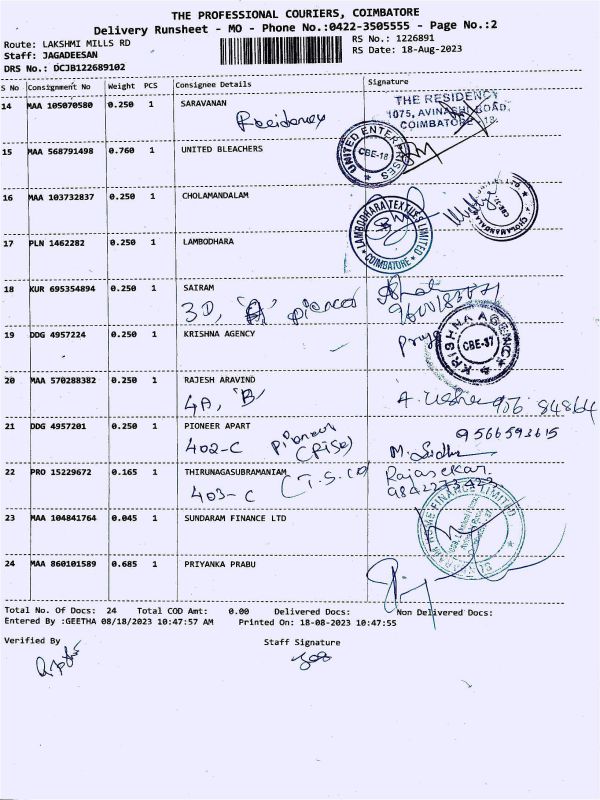 THE PROFESSIONAL COURIERS, COIMBATORE
Delivery Runsheet - MO - Phone No.:0422-3505555 - Page No.:2
Route: LAKSHMI MILLS RD
RS No.: 1226891
Staff: JAGADEESAN
RS Date: 18-Aug-2023
DRS No.: DCJB122689102
S No Consignment No Weight PCS Consignee Details Signature
14 MAA 105070580 0.250 1 SARAVANAN
Residency
THE RESIDENCY
1075, AVINASHI ROAD,
COIMBATORE - 18
15 MAA 568791498 0.760 1 UNITED BLEACHERS
UNITED ENTERPRISES
CBE-18
16 MAA 103732837 0.250 1 CHOLAMANDALAM
17 PLN 1462282 0.250 1 LAMBODHARA
LAMBODHARA TEXTILES LIMITED
COIMBATORE
18 KUR 695354894 0.250 1 SAIRAM
3D, A
19 DDG 4957224 0.250 1 KRISHNA AGENCY
Priya
KRISHNA AGENC
CBE-37
20 MAA 570288382 0.250 1 RAJESH ARAVIND
4A, 'B'
A. Usha
21 DDG 4957201 0.250 1 PIONEER APART
402-C
M. Sidhu
9566593615
22 PRO 15229672 0.165 1 THIRUNAGASUBRAMANIAM
403-C
Rajasekar
23 MAA 104841764 0.045 1 SUNDARAM FINANCE LTD
HOME FINANCE LIMITED
24 MAA 860101589 0.685 1 PRIYANKA PRABU
Total No. Of Docs: 24 Total COD Amt: 0.00 Delivered Docs: Non Delivered Docs:
Entered By :GEETHA 08/18/2023 10:47:57 AM Printed On: 18-08-2023 10:47:55
Verified By Staff Signature